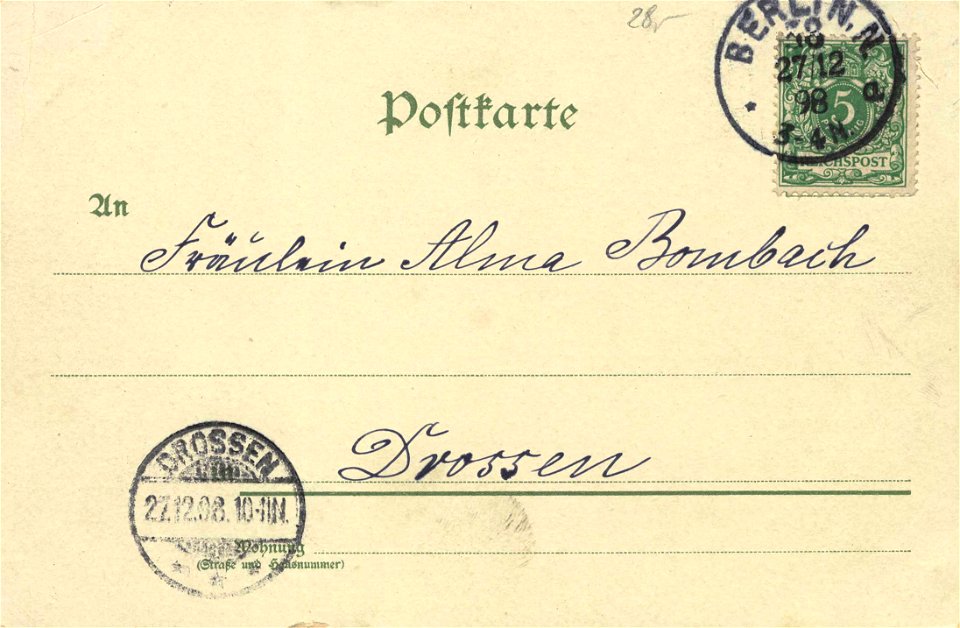 28,-
BERLIN. N.
58
27/12
98
3-4N.
a
5
REICHSPOST
Postkarte
An
Fräulein Alma Bombach
Drossen
DROSSEN
27.12.98. 10-11N.
Wohnung
(Straße und Hausnummer)